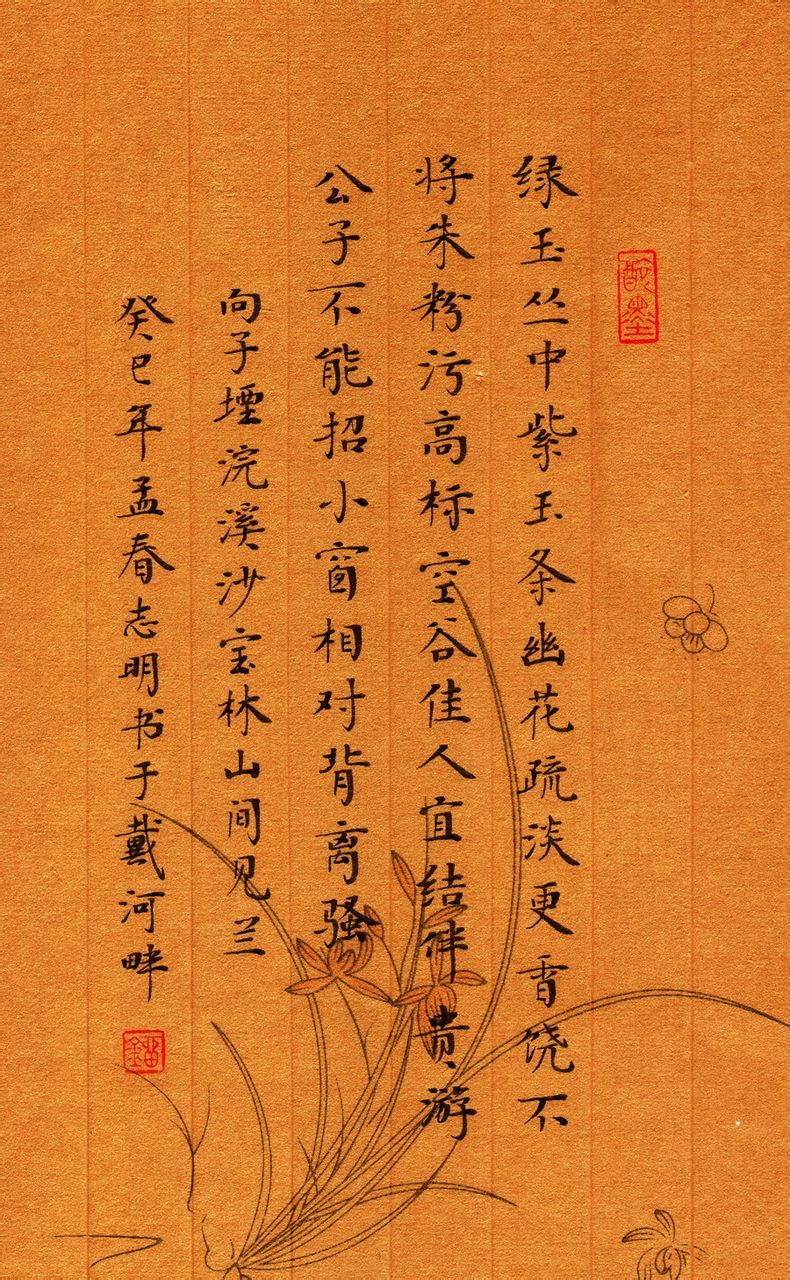 绿玉丛中紫玉条幽花疏淡更香饶不
将朱粉污高标空谷佳人宜结伴贵游
公子不能招小窗相对背离骚
向子堙浣溪沙宝林山间见兰
癸巳年孟春志明书于戴河畔